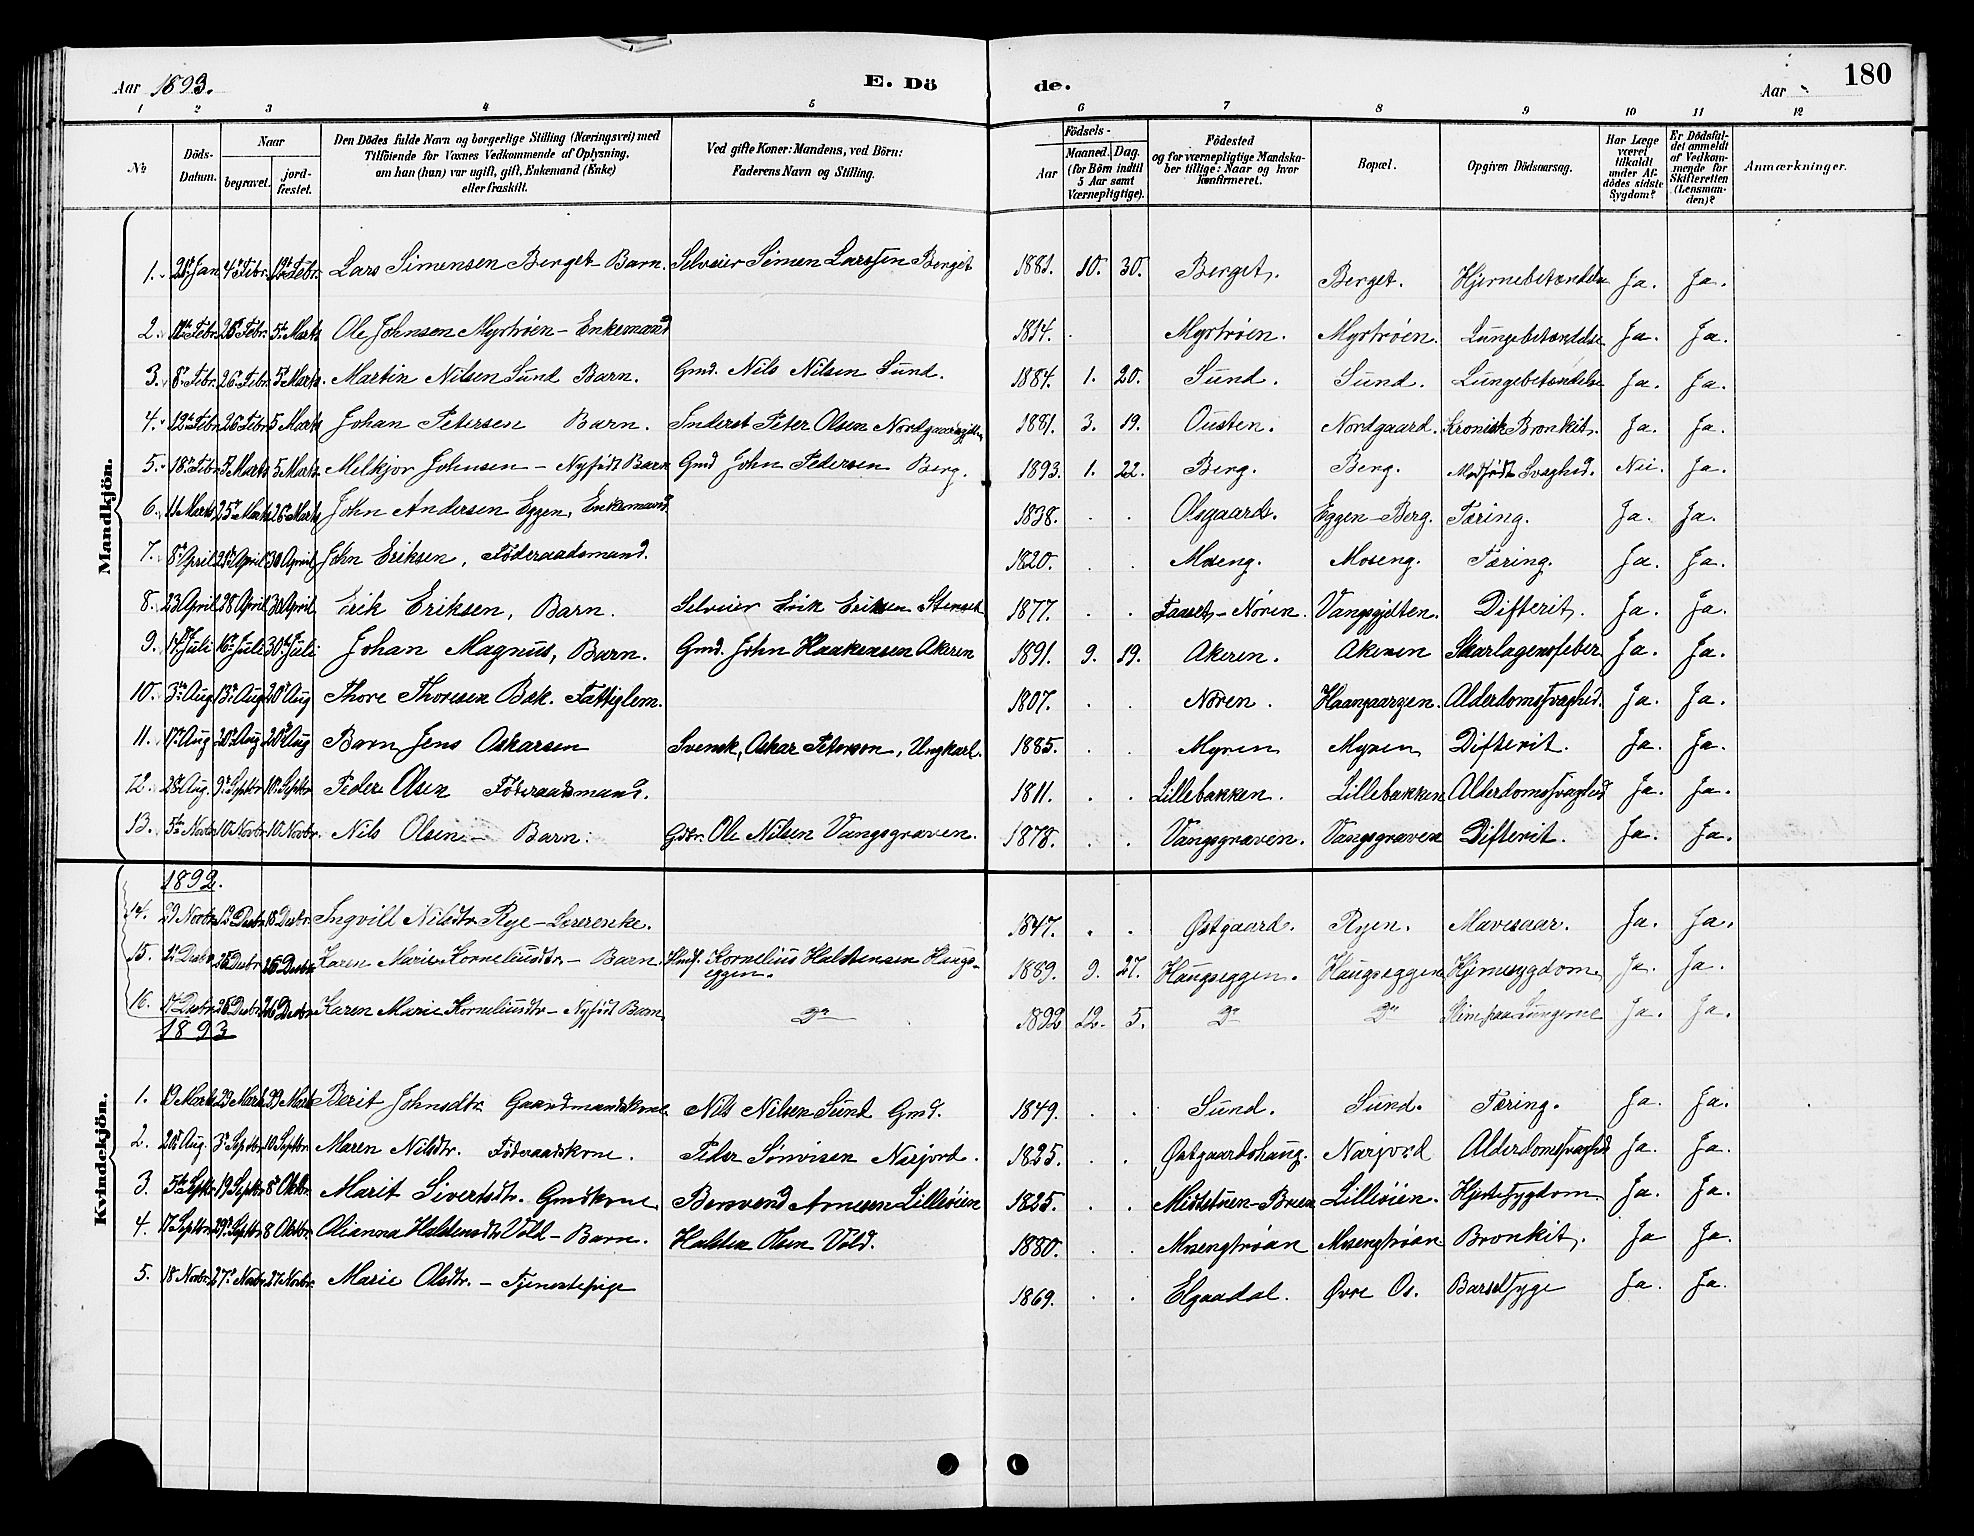 Aar 1893. E. Dö
de. Aar 180
1 2 3 4 5 6 7 8 9 10 11 12
No Döds-Datum. Naar begravet. jord-fæstet. Den Dödes fulde Navn og borgerlige Stilling (Næringsvei) med Tilföiende for Voxnes Vedkommende af Oplysning, om han (hun) var ugift, gift, Enkemand (Enke) eller fraskilt. Ved gifte Koner: Mandens, ved Börn: Faderens Navn og Stilling. Födsels- Aar Maaned. Dag. (for Börn indtil 5 Aar samt Værnepligtige). Födested og for værnepligtige Mandskaber tillige: Naar og hvor konfirmeret. Bopæl. Opgiven Dödsaarsag. Har Læge været tilkaldt under Afdödes sidste Sygdom? Er Dödsfaldet anmeldt af Vedkommende for Skifteretten (Lensmanden)? Anmærkninger.
Mandkjön.
1. Jan 4de Febr. Febr. Lars Simensen Berget Barn. Selveier Simen Larssen Berget 1881. 10. 30. Berget. Berget. Hjernebetændelse Ja. Ja.
2. Febr. 26de Febr. 5te Marts Ole Johnsen Myrtrøen - Enkemand 1814. Myrtrøen. Myrtrøen. Lungebetændelse Ja. Ja.
3. 8de Febr. 26de Febr. 5te Marts. Martin Nilsen Sund Barn. Gmd. Nils Nilsen Sund. 1884. 1. 20. Sund. Sund. Lungebetændelse Ja. Ja.
4. 12te Febr. 26de Febr. 5 Marts Johan Petersen Barn. Inderst Peter Olsen 1881. 3. 19. Ousten. Nordgaard. Kronisk Bronkit. Ja. Ja.
5. 18de Febr. 5 Marts 5 Marts. Melkjor Johnsen - Nyfødt Barn Gmd John Pedersen Berg. 1893. 1. 22. Berg. Berg. Medfødt Svaghed. Nei. Ja.
6. 11 Marts 25de Marts 26de Marts John Andersen Eggen, Enkemand. 1838. . . Olsgaard. Eggen-Berg. Tæring. Ja. Ja.
7. 8de April April 30 April John Eriksen, Føderaadsmand. 1820. . . Moseng. Moseng. Tæring. Ja. Ja.
8. 23 April 28 April 30 April, Erik Eriksen, Barn. Selveier Erik Eriksen 1877. . . Faaset-Nøren. Vangsgjelten. Difterit. Ja. Ja.
9. Juli 16de Juli 30te Juli Johan Magnus, Barn. Gmd. John Haakensen Akeren 1891. 9. 19. Akeren. Akeren Skarlagensfeber Ja. Ja.
10. 3de Aug 13de Aug 20de Aug Thore Thoresen Bak. Fattiglem. 1807. . . Nøren. Alderdomssvaghed. Ja. Ja.
11. 17de Aug 20de Aug 20de Aug Barn Jens Oskarsen Svensk, Oskar Peterson, Ungkarl. 1885. . . Myren Myren Difterit. Ja. Ja.
12. 28de Aug. 9de Septbr 10de Septbr Peder Olsen Føderaadsmand. 1811. . . Lillebakken. Lillebakken Alderdomssvaghed Ja. Ja.
13. 5te Novbr 10 Novbr. 10 Novbr. Nils Olsen - Barn. Gdbr. Ole Nilsen Vangsgraven. 1878. . . Vangsgraven. Vangsgraven Difterit. Ja. Ja.
Kvindekjön.
1892.
14. 29 Novbr. Decbr 18 Decbr. Ingvill Nilsdtr Rye - Lærerenke. 1847. . . Østgaard. Ryen. Mavesaar. Ja. Ja.
15. Decbr 26 Decbr 26 Decbr Karen Marie Korneliusdtr. - Barn. Kornelius Halstensen Haugs-
eggen. 1889. 9. 27. Haugseggen. Haugseggen Hjernesygdom. Ja. Ja.
16. Decbr 26 Decbr 26 Decbr. Karen Marie Korneliusdtr - Nyfødt Barn. Do 1892 12. 5. Do Do Slim paa Lungerne Ja. Ja.
1893
1. 19 Marts 29 Marts 29 Marts Berit Johnsdtr. Gaardmandskone Nils Nilsen Sund Gmd. 1849. . . Sund. Sund. Tæring. Ja. Ja.
2. 20de Aug. 3de Septbr 10 Septbr Maren Nilsdtr. Føderaadskone. Peder Simonsen Narjord. 1825. . . Østgaardshaug. Narjord Alderdomssvaghed Ja. Ja.
3. 5te Septbr 19 Septbr 8de Oktbr. Marit Sivertsdtr. Gmdkone Bersvend Arnesen Lilleøien 1825. . . Midtstuen-Brœn Lilleøien. Hjertesygdom. Ja. Ja.
4. 17 Septbr 29de Septbr 8 Oktbr. Olianna Halstensdtr Vold - Barn. Halsten Olsen Vold. 1880. . . Mosengtrøan Mosengtrøan Bronkit. Ja Ja.
5. 18 Novbr. 27de Novbr 27 Novbr. Marie Olsdtr. - Tjenestepige 1869. . . Elgaadal. Øvre Os. Barselsyge Ja. Ja.